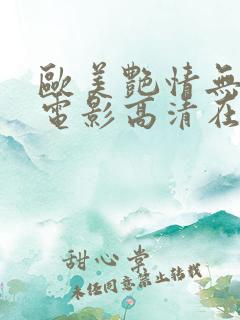 歐美艷情無
電影高清在
甜心棠
未经同意禁止转载